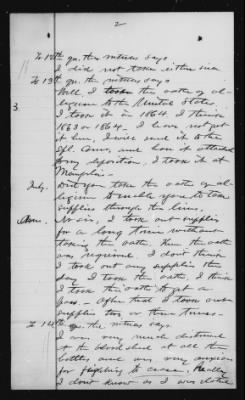 2
To 12th qu. the witness says
I did not take either side
To 13th qu. the witness says
3 Well I took the oath of al-
legiance to the United States.
I took it in 1864. I think
1863 or 1864. I have not got
it here, I will send it to the
Spl. Com. and have it attached
to my deposition, I took it at
Memphis—
Did you take the oath of al-
legiance to enable you to take
supplies through the lines.
Ans. No sir, I took out supplies
for a long time without
taking the oath, then the oath
was required. I don't think
I took out any supplies the
day I took the oath. I think
I took the oath to get a
pass. — After that I took out
supplies two or three times—
To 14th qu. the witness says
I was very much distressed
at the blood shed at all the
battles and was very anxious
for fighting to cease. Really
I don't know as I was elated